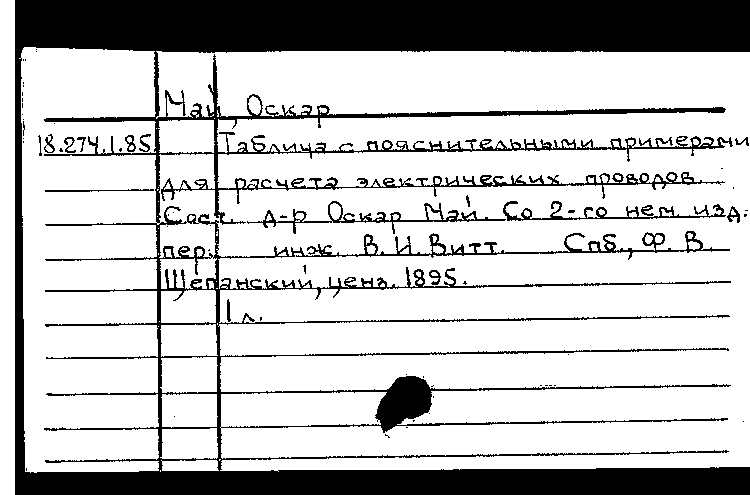 Май, Оскар
18.274.1.85. Таблица с пояснительными примерами
для расчета электрических проводов.
Сост. д-р Оскар Май. Со 2-го нем. изд.
пер. инж. В. И. Витт. Спб., Ф. В.
Щепанский, ценз. 1895.
1 л.